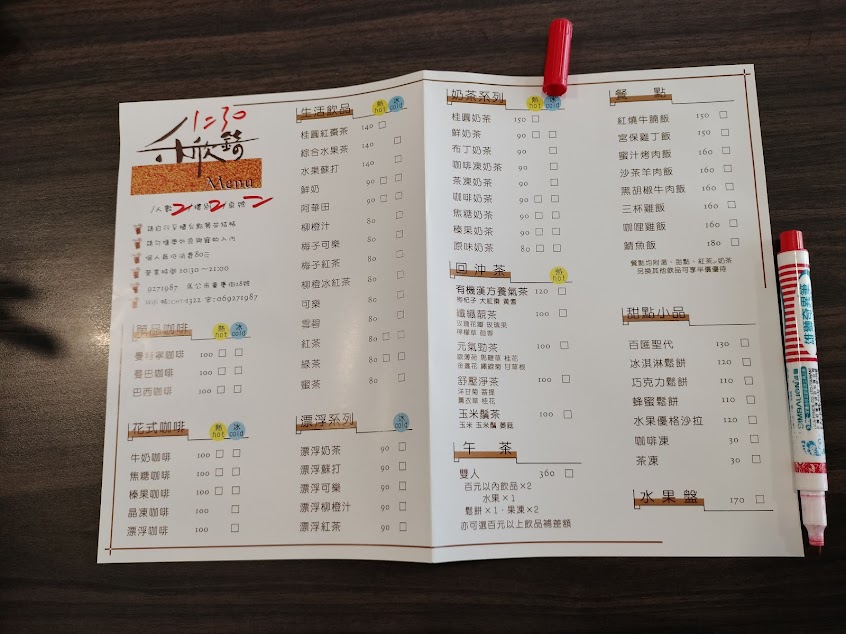 1:30
欣錡
Menu
人數 2 樓別 2 桌號 2
個人最低消費80元
營業時間 10:30～21:00
單品咖啡
熱 hot 冰 cold
曼特寧咖啡 100
曼巴咖啡 100
巴西咖啡 100
花式咖啡
熱 hot 冰 cold
牛奶咖啡 100
焦糖咖啡 100
榛果咖啡 100
晶凍咖啡 100
漂浮咖啡 100
生活飲品
熱 hot 冰 cold
桂圓紅棗茶 140
綜合水果茶 140
水果蘇打 140
鮮奶 90
阿華田 90
柳橙汁 80
梅子可樂 80
梅子紅茶 80
柳橙冰紅茶 80
可樂 80
雪碧 80
紅茶 80
綠茶 80
蜜茶 80
漂浮系列
冰 cold
漂浮奶茶 90
漂浮蘇打 90
漂浮可樂 90
漂浮柳橙汁 90
漂浮紅茶 90
奶茶系列
熱 hot 冰 cold
桂圓奶茶 150
鮮奶茶 90
布丁奶茶 90
咖啡凍奶茶 90
茶凍奶茶 90
咖啡奶茶 90
焦糖奶茶 90
榛果奶茶 90
原味奶茶 80
回沖茶
熱 hot
有機漢方養氣茶 120
枸杞子 大紅棗 黃耆
纖纖靚茶 100
玫瑰花瓣 玫瑰果
檸檬草 茴香
元氣勁茶 100
歐薄荷 馬鞭草 桂花
金盞花 鐵線菊 甘草根
舒壓淨茶 100
洋甘菊 菩提
薰衣草 桂花
玉米鬚茶 100
玉米 玉米鬚 蘑菇
午茶
雙人 360
百元以內飲品×2
水果×1
鬆餅×1，果凍×2
亦可選百元以上飲品補差額
餐點
紅燒牛腩飯 150
宮保雞丁飯 150
蜜汁烤肉飯 160
沙茶羊肉飯 160
黑胡椒牛肉飯 160
三杯雞飯 160
咖哩雞飯 160
鯖魚飯 180
餐點均附湯、甜點、紅茶or奶茶
另換其他飲品可享半價優待
甜點小品
百匯聖代 130
冰淇淋鬆餅 120
巧克力鬆餅 110
蜂蜜鬆餅 110
水果優格沙拉 120
咖啡凍 30
茶凍 30
水果盤 170